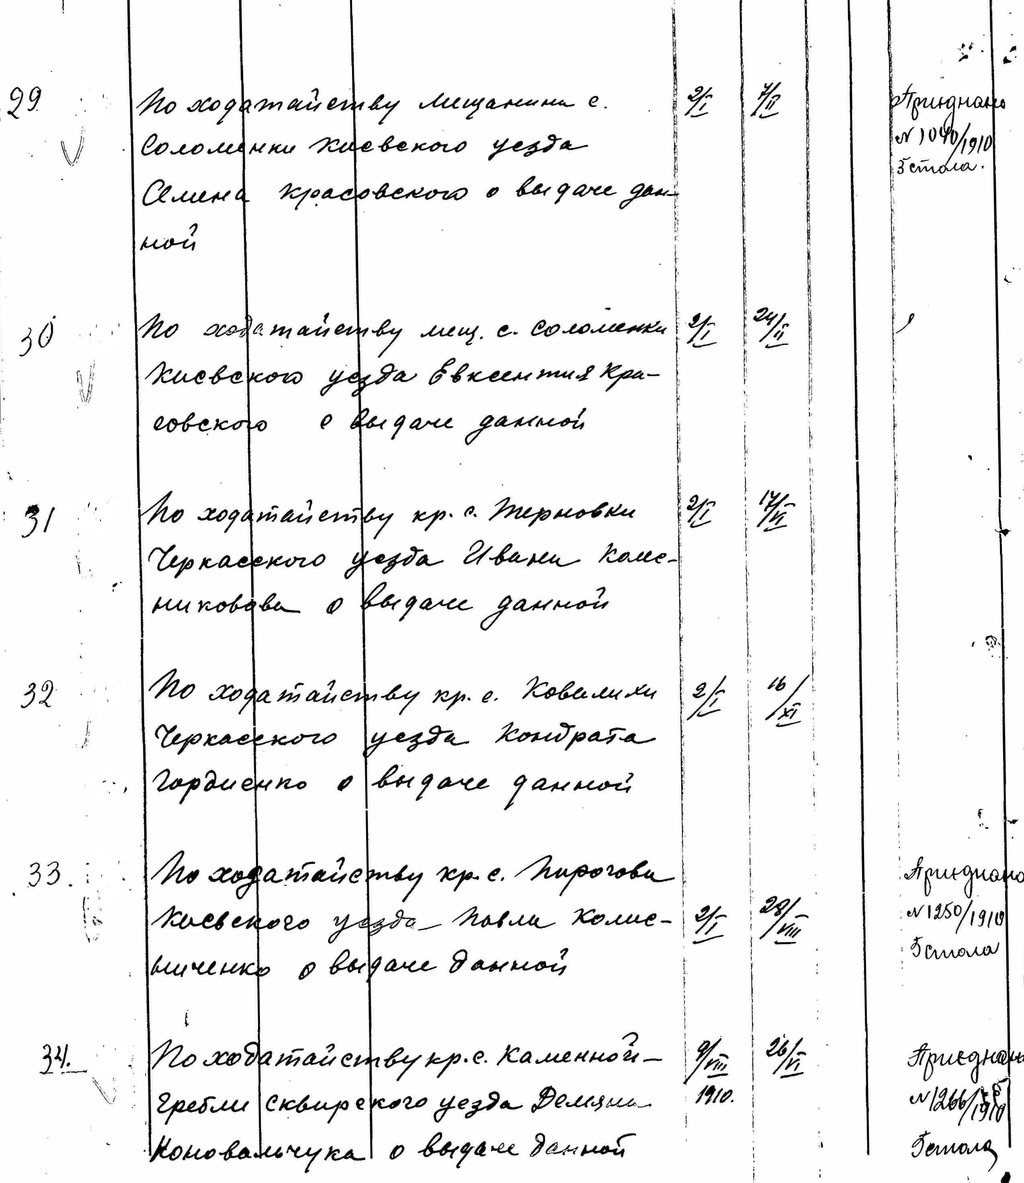 29
По ходатайству мещанина с.
Соломенки Киевского уезда
Семена Красовского о выдаче дан-
ной
2/I
7/II
Приднано
N 1040/1910
5 стола.
30
По ходатайству мещ. с. Соломенки
Киевского уезда Евксентия Кра-
совского о выдаче данной
2/I
24/II
31
По ходатайству кр. с. Терновки
Черкасского уезда Ивана Колес-
никовова о выдаче данной
2/I
17/VI
32
По ходатайству кр. с. Ковалихи
Черкасского уезда Кондрата
Гордиенко о выдаче данной
2/I
16/XI
33.
По ходатайству кр. с. Пирогова
Киевского уезда Павла Колис-
ниченко о выдаче данной
2/I
28/VIII
Приднано
N 1250/1910
5 стола
34.
По ходатайству кр. с. Каменной-
гребли Сквирского уезда Демяна
Коновальчука о выдаче данной
9/VIII
1910.
26/VI
Приєднано
N 1266/1910
5 стола